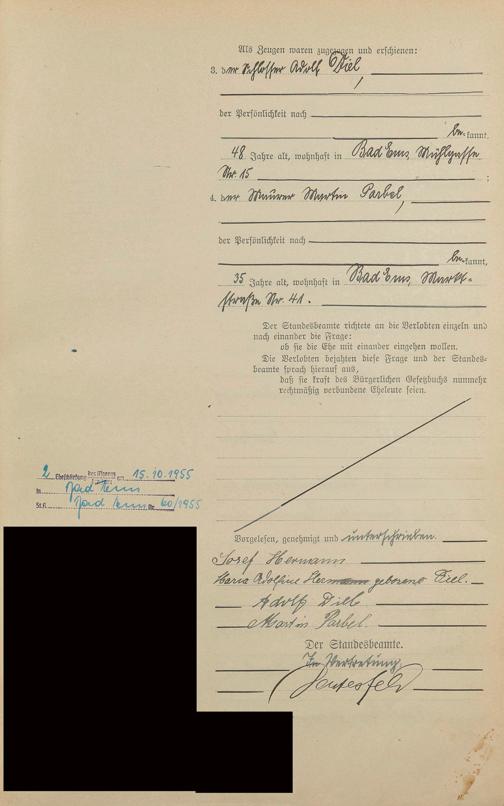 Als Zeugen waren zugezogen und erschienen:
3. der Schlosser Adolf Diel,
der Persönlichkeit nach
be=kannt,
48 Jahre alt, wohnhaft in Bad Ems, Mühlgasse
Nr. 15 ;
4. der Maurer Martin Parbel,
der Persönlichkeit nach
be=kannt,
35 Jahre alt, wohnhaft in Bad Ems, Markt-
straße Nr. 41.
Der Standesbeamte richtete an die Verlobten einzeln und
nach einander die Frage:
ob sie die Ehe mit einander eingehen wollen.
Die Verlobten bejahten diese Frage und der Standes-
beamte sprach hierauf aus,
daß sie kraft des Bürgerlichen Gesetzbuchs nunmehr
rechtmäßig verbundene Eheleute seien.
2. Eheschließung des Mannes am 15.10.1955
in Bad Ems
St.A. Bad Ems Nr. 60/1955
Vorgelesen, genehmigt und unterschrieben.
Josef Hermann
Maria Adolfine Hermann geborene Diel.
Adolf Diel
Martin Parbel.
Der Standesbeamte.
In Vertretung